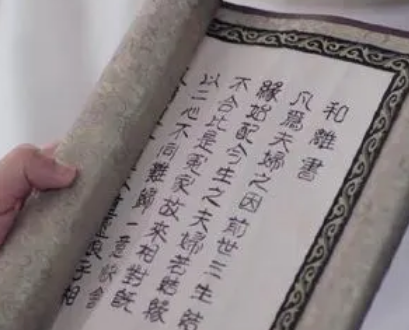 和離書
凡爲夫婦之因 前世三生結
緣始配今生之夫婦若結緣
不合比是冤家故來相對既
以二心不同難歸一意快會